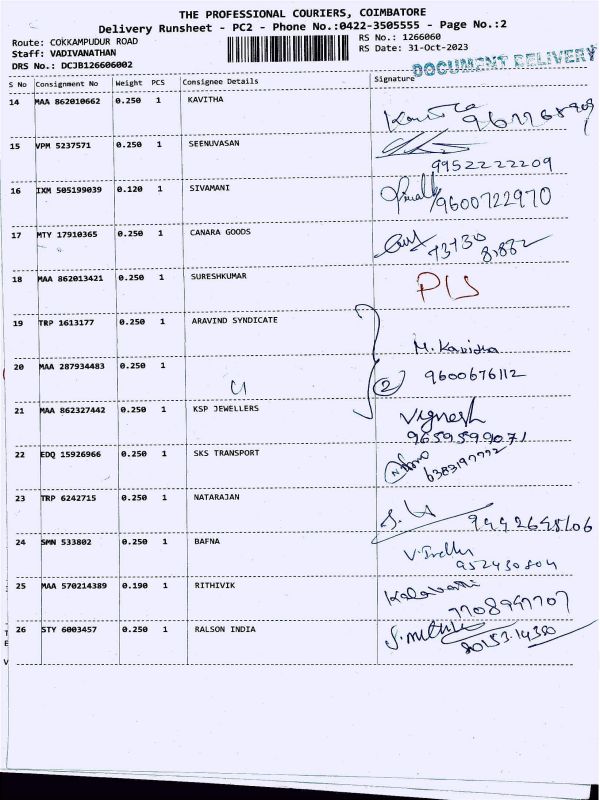 THE PROFESSIONAL COURIERS, COIMBATORE
Delivery Runsheet - PC2 - Phone No.:0422-3505555 - Page No.:2
Route: COKKAMPUDUR ROAD
RS No.: 1266060
Staff: VADIVANATHAN
RS Date: 31-Oct-2023
DRS No.: DCJB126606002
DOCUMENT DELIVERY
S No Consignment No Weight PCS Consignee Details Signature
14 MAA 862010662 0.250 1 KAVITHA
15 VPM 5237571 0.250 1 SEENUVASAN
9952222209
16 IXM 505199039 0.120 1 SIVAMANI
9600722970
17 MTY 17910365 0.250 1 CANARA GOODS
18 MAA 862013421 0.250 1 SURESHKUMAR
19 TRP 1613177 0.250 1 ARAVIND SYNDICATE
M. Kavidha
20 MAA 287934483 0.250 1 2 9600676112
21 MAA 862327442 0.250 1 KSP JEWELLERS Vignesh
9659599071
22 EDQ 15926966 0.250 1 SKS TRANSPORT
23 TRP 6242715 0.250 1 NATARAJAN
9442648106
24 SMN 533802 0.250 1 BAFNA
25 MAA 570214389 0.190 1 RITHIVIK
26 STY 6003457 0.250 1 RALSON INDIA